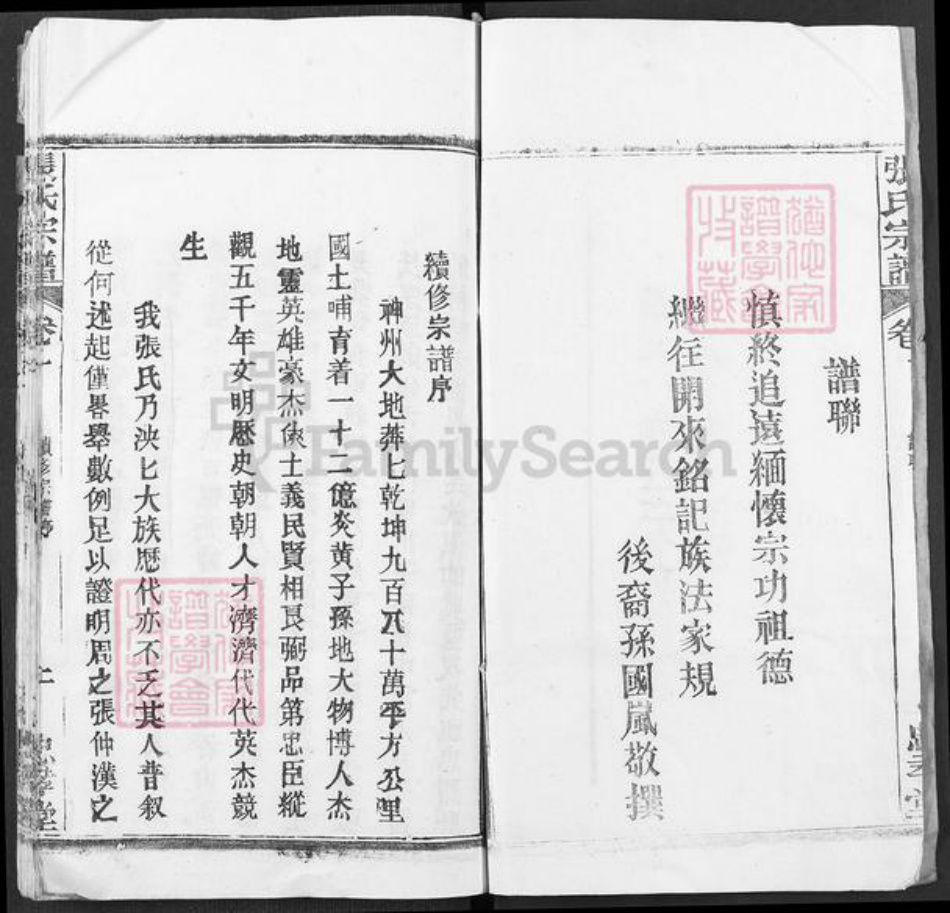 張氏宗譜
卷
譜聯
慎終追遠緬懷宗功祖德
繼往開來銘記族法家規
後裔孫國嵐敬撰
續修宗譜序
神州大地莽匕乾坤九百八十萬平方公里
國土哺育着一十二億炎黄子孫地大物博人杰
地靈英雄豪杰俠士義民賢相良弼品第忠臣縱
觀五千年文明歷史朝朝人才濟濟代代英杰競
生
我張氏乃泱匕大族歷代亦不乏其人昔叙
從何述起僅畧舉數例足以證明周之張仲漢之
張氏宗譜
卷一
續修宗譜序
忠孝堂
FamilySearch